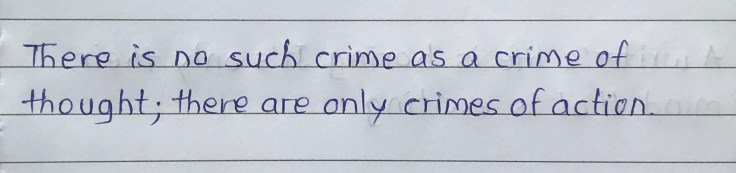 There is no such crime as a crime of
thought; there are only crimes of action.